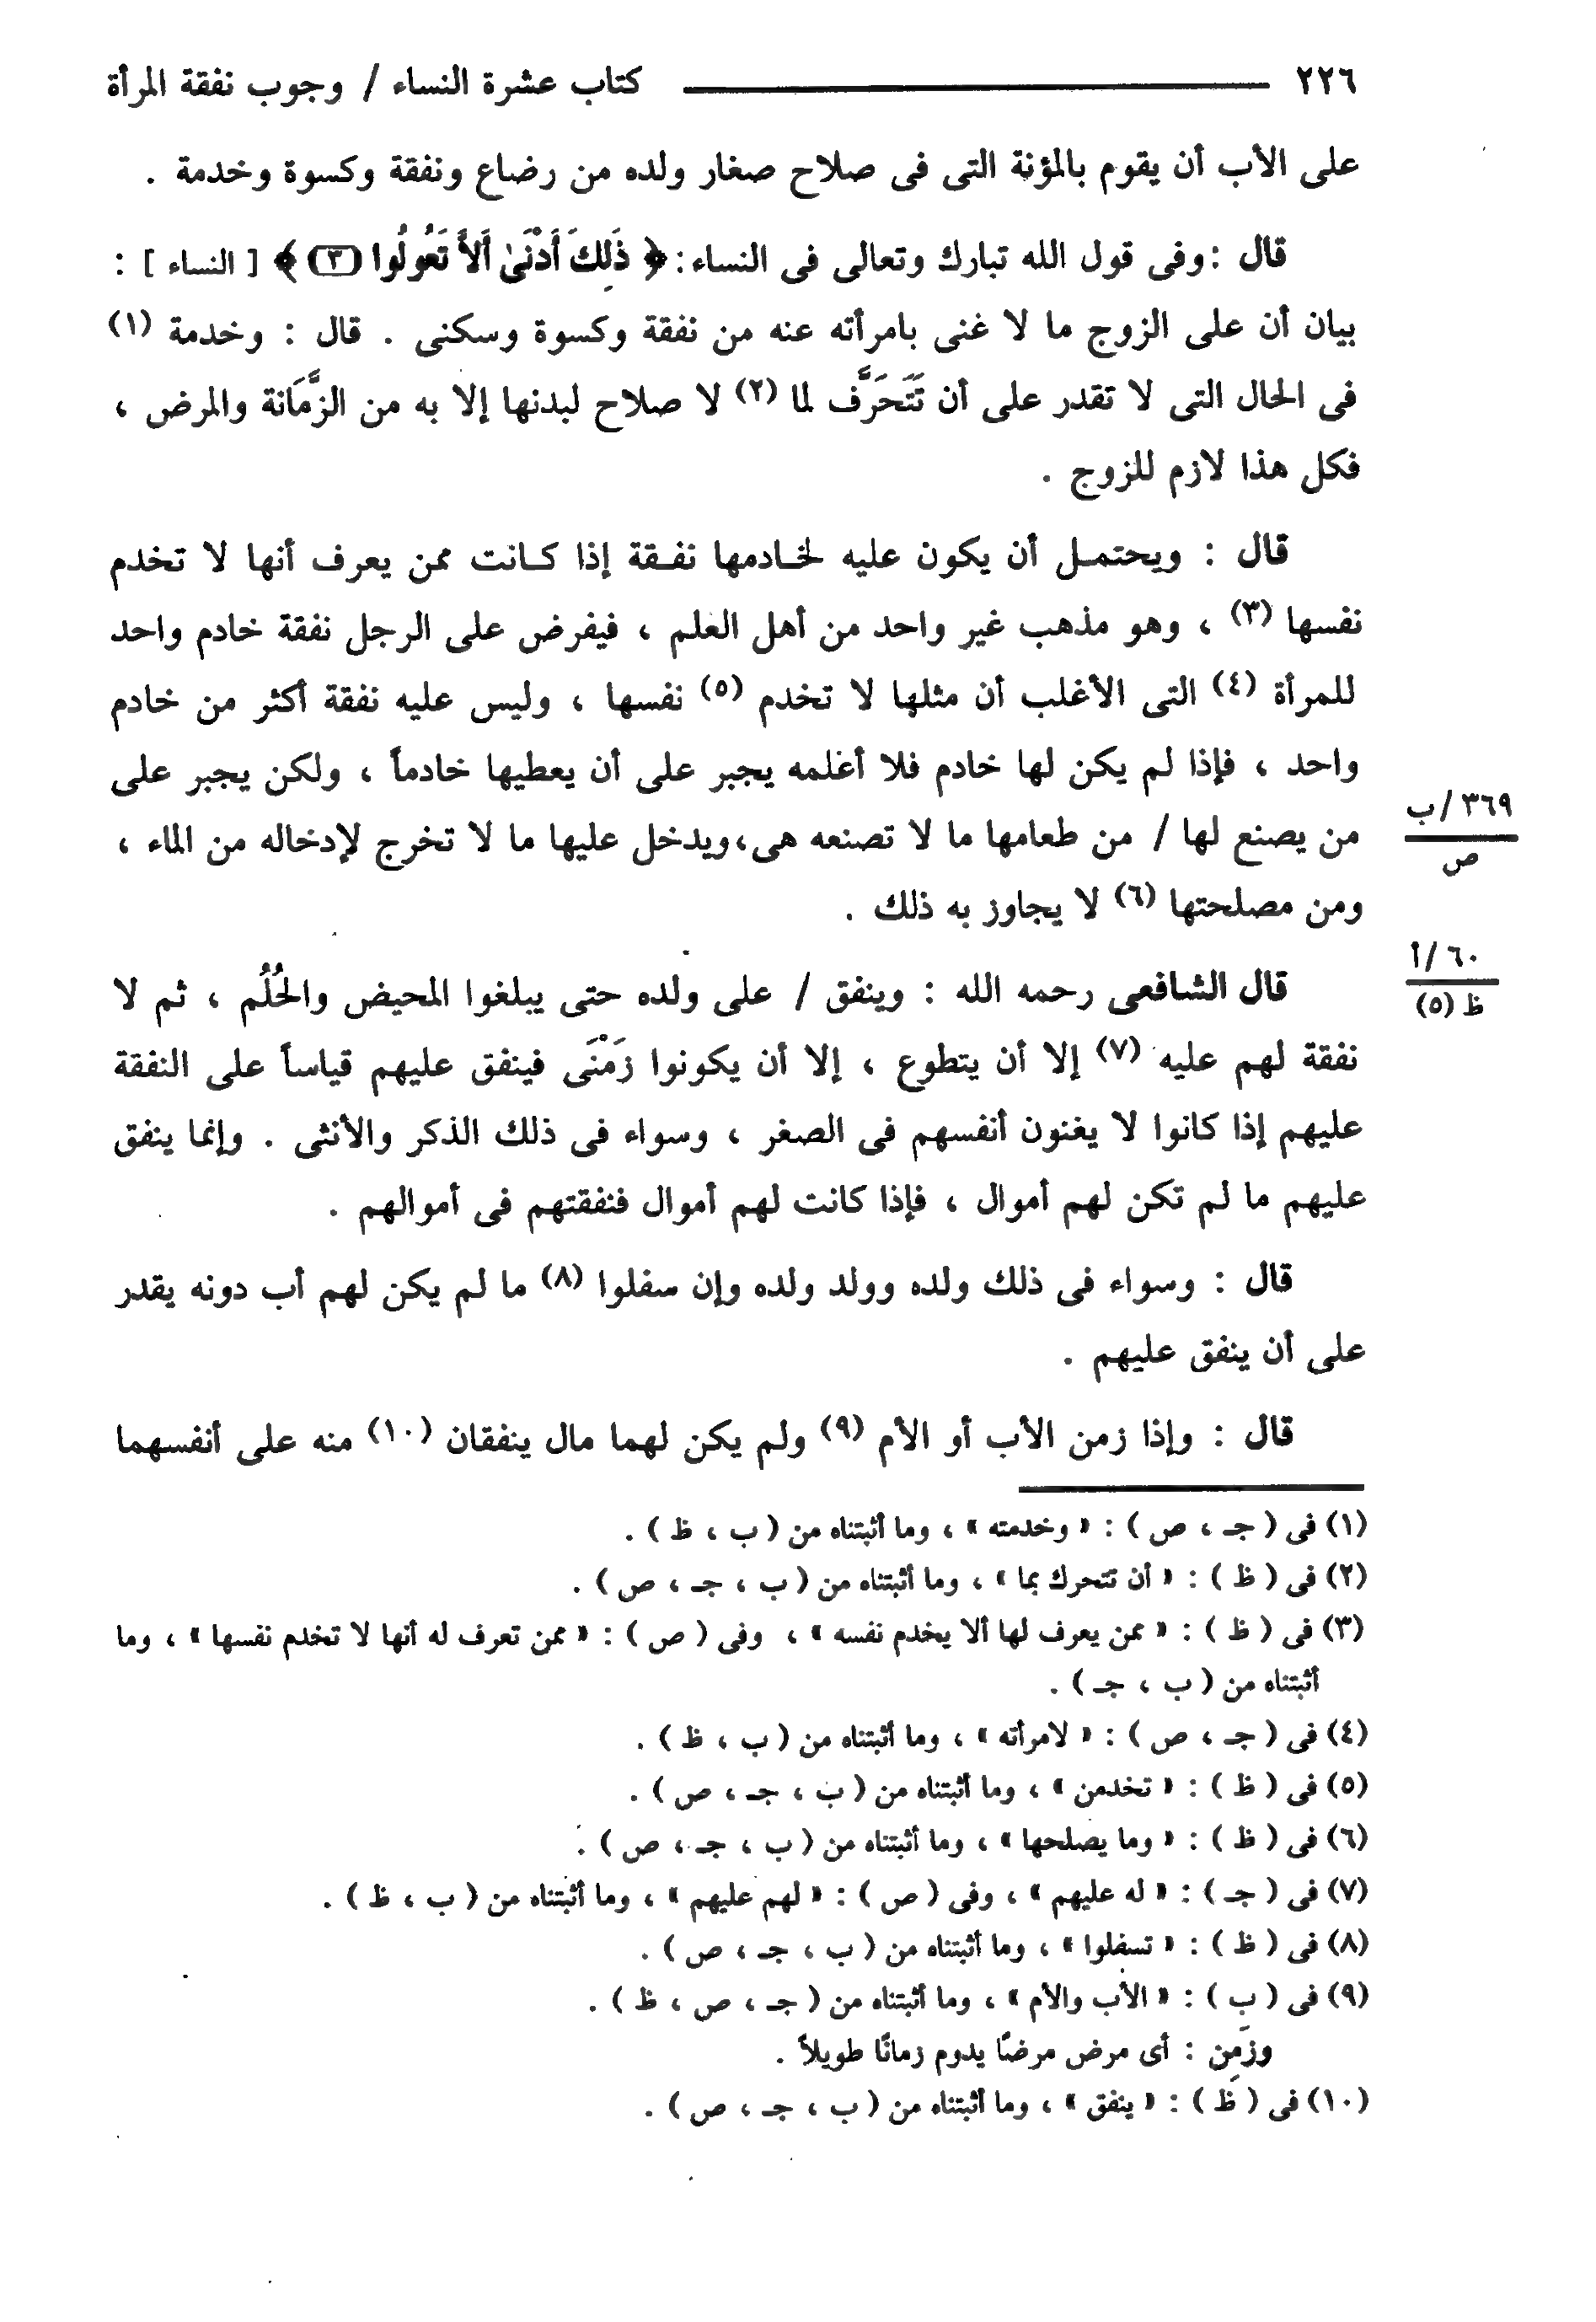 ٢٢٦ كتاب عشرة النساء / وجوب نفقة المرأة
على الأب أن يقوم بالمؤنة التى فى صلاح صغار ولده من رضاع ونفقة وكسوة وخدمة .
قال : وفى قول الله تبارك وتعالى فى النساء: ﴿ ذَلِكَ أَدْنَىٰ أَلاَّ تَعُولُوا (٣) ﴾ [ النساء ] :
بيان أن على الزوج ما لا غنى بامرأته عنه من نفقة وكسوة وسكنى . قال : وخدمة (١)
فى الحال التى لا تقدر على أن تَتَحَرَّف لما (٢) لا صلاح لبدنها إلا به من الزَّمَانة والمرض ،
فكل هذا لازم للزوج .
قال : ويحتمل أن يكون عليه لخادمها نفقة إذا كانت ممن يعرف أنها لا تخدم
نفسها (٣) ، وهو مذهب غير واحد من أهل العلم ، فيفرض على الرجل نفقة خادم واحد
للمرأة (٤) التى الأغلب أن مثلها لا تخدم (٥) نفسها ، وليس عليه نفقة أكثر من خادم
واحد ، فإذا لم يكن لها خادم فلا أعلمه يجبر على أن يعطيها خادماً ، ولكن يجبر على
من يصنع لها / من طعامها ما لا تصنعه هى،ويدخل عليها ما لا تخرج لإدخاله من الماء ،
٣٦٩/ب
ص
ومن مصلحتها (٦) لا يجاوز به ذلك .
قال الشافعى رحمه الله : وينفق / على ولده حتى يبلغوا المحيض والحُلُم ، ثم لا
٦٠/أ
ظ (٥)
نفقة لهم عليه (٧) إلا أن يتطوع ، إلا أن يكونوا زَمْنَى فينفق عليهم قياساً على النفقة
عليهم إذا كانوا لا يغنون أنفسهم فى الصغر ، وسواء فى ذلك الذكر والأنثى . وإنما ينفق
عليهم ما لم تكن لهم أموال ، فإذا كانت لهم أموال فنفقتهم فى أموالهم .
قال : وسواء فى ذلك ولده وولد ولده وإن سفلوا (٨) ما لم يكن لهم أب دونه يقدر
على أن ينفق عليهم .
قال : وإذا زمن الأب أو الأم (٩) ولم يكن لهما مال ينفقان (١٠) منه على أنفسهما
(١) فى ( جـ ، ص ) : « وخدمته » ، وما أثبتناه من ( ب ، ظ ) .
(٢) فى ( ظ ) : « أن تتحرك بما » ، وما أثبتناه من ( ب ، جـ ، ص ) .
(٣) فى ( ظ ) : « ممن يعرف لها ألا يخدم نفسه » ، وفى ( ص ) : « ممن تعرف له أنها لا تخدم نفسها » ، وما
أثبتناه من ( ب ، جـ ) .
(٤) فى ( جـ ، ص ) : « لامرأته » ، وما أثبتناه من ( ب ، ظ ) .
(٥) فى ( ظ ) : « تخدمن » ، وما أثبتناه من ( ب ، جـ ، ص ) .
(٦) فى ( ظ ) : « وما يصلحها » ، وما أثبتناه من ( ب ، جـ ، ص ) .
(٧) فى ( جـ ) : « له عليهم » ، وفى ( ص ) : « لهم عليهم » ، وما أثبتناه من ( ب ، ظ ) .
(٨) فى ( ظ ) : « تسفلوا » ، وما أثبتناه من ( ب ، جـ ، ص ) .
(٩) فى ( ب ) : « الأب والأم » ، وما أثبتناه من ( جـ ، ص ، ظ ) .
وزَمِن : أى مرض مرضًا يدوم زمانًا طويلاً .
(١٠) فى ( ظ ) : « ينفق » ، وما أثبتناه من ( ب ، جـ ، ص ) .